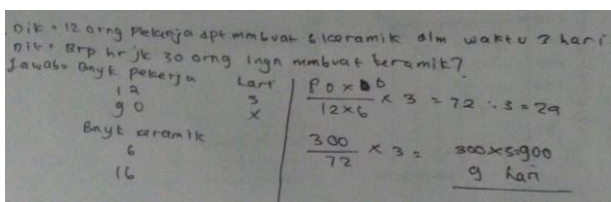 Dik = 12 orng Pekerja dpt mmbuat 6 keramik dlm waktu 3 hari
Dit = Brp hr jk 30 orng ingn mmbuat keramik?
Jawab = Bnyk pekerja hari
12 3
90 x
Bnyk keramik
6
16
12x6 x 3 = 72 : 3 = 29
300
72 x 3 = 300x3=900
9 hari